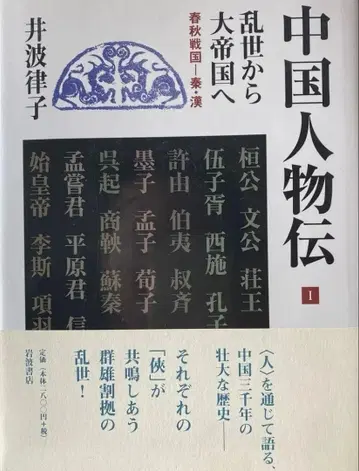 中国人物伝
Ⅰ
乱世から
大帝国へ
春秋戦国―秦・漢
井波律子
桓公 文公 荘王
伍子胥 西施 孔子
許由 伯夷 叔斉
墨子 孟子 荀子
呉起 商鞅 蘇秦
孟嘗君 平原君 信
始皇帝 李斯 項羽
〈人〉を通じて語る、
中国三千年の
壮大な歴史――
それぞれの
「俠」が
共鳴しあう
群雄割拠の
乱世！
定価(本体二八〇〇円+税)
岩波書店